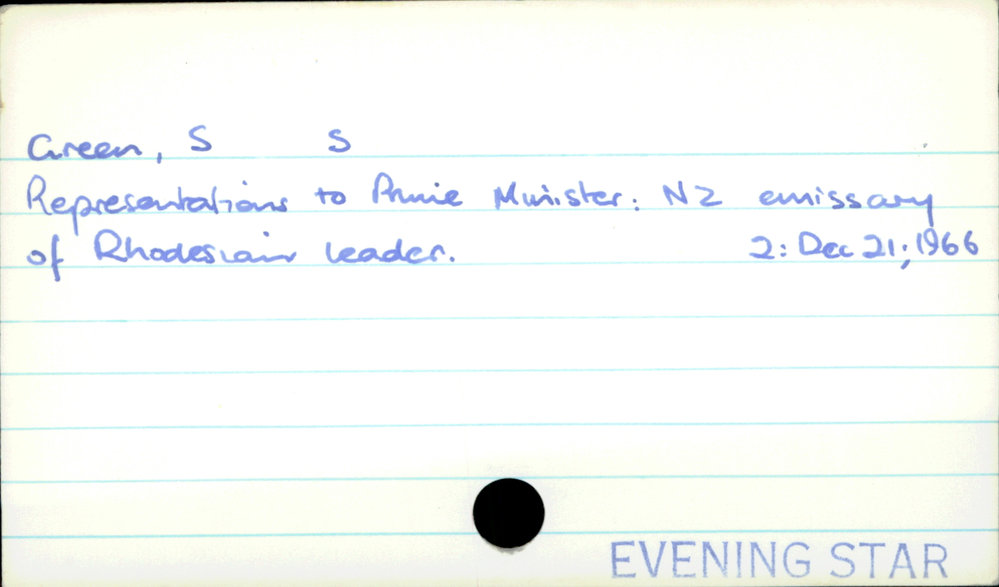 Green, S S
Representations to Prime Minister: NZ emissary
of Rhodesian leader. 2: Dec 21; 1966
EVENING STAR